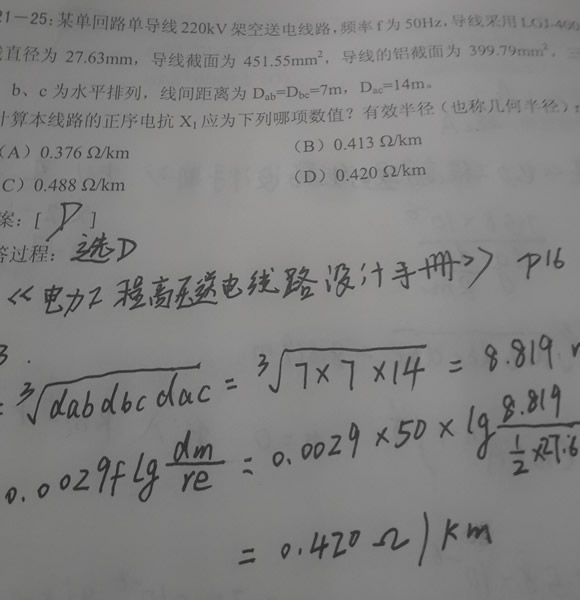 21－25：某单回路单导线 220kV 架空送电线路，频率 f 为 50Hz，导线采用 LGJ-400
直径为 27.63mm，导线截面为 451.55mm²，导线的铝截面为 399.79mm²，三
b、c 为水平排列，线间距离为 Dab=Dbc=7m，Dac=14m。
计算本线路的正序电抗 X1 应为下列哪项数值？有效半径（也称几何半径）r
（A）0.376 Ω/km （B）0.413 Ω/km
C）0.488 Ω/km （D）0.420 Ω/km
案：[ D ]
答过程：选D
《电力工程高压送电线路设计手册》 P16
3.
= ³√(dab dbc dac) = ³√(7×7×14) = 8.819
0.0029f lg dm/re = 0.0029×50×lg 8.819/(1/2×27.6
= 0.420 Ω/km